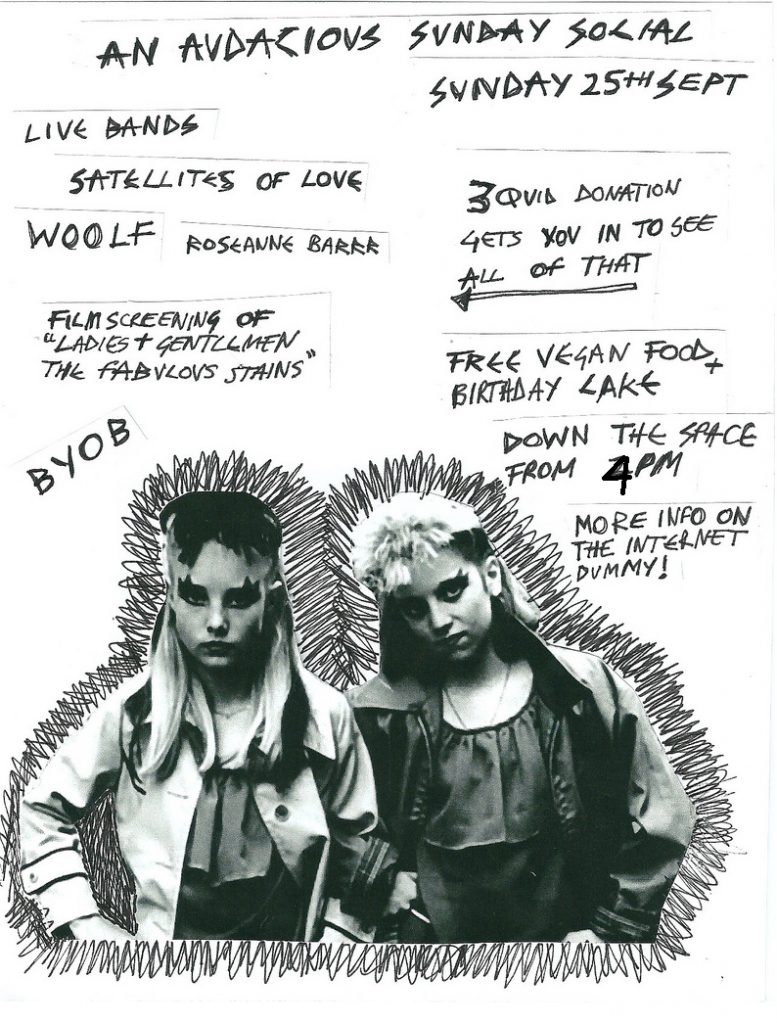 AN AUDACIOUS SUNDAY SOCIAL
SUNDAY 25TH SEPT
LIVE BANDS
SATELLITES OF LOVE
WOOLF
ROSEANNE BARRR
FILM SCREENING OF
"LADIES + GENTLEMEN
THE FABULOUS STAINS"
BYOB
3 QUID DONATION
GETS YOU IN TO SEE
ALL OF THAT
FREE VEGAN FOOD +
BIRTHDAY CAKE
DOWN THE SPACE
FROM 4PM
MORE INFO ON
THE INTERNET
DUMMY!